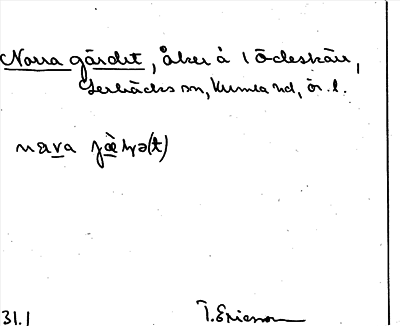 Norra gärdet, åker å 1 Ödeskärr,
Lerbäcks sn, Kumla hd, ör. l.
nɷrva jæ̀ḷṇə(t)
31.1 T. Ericsson